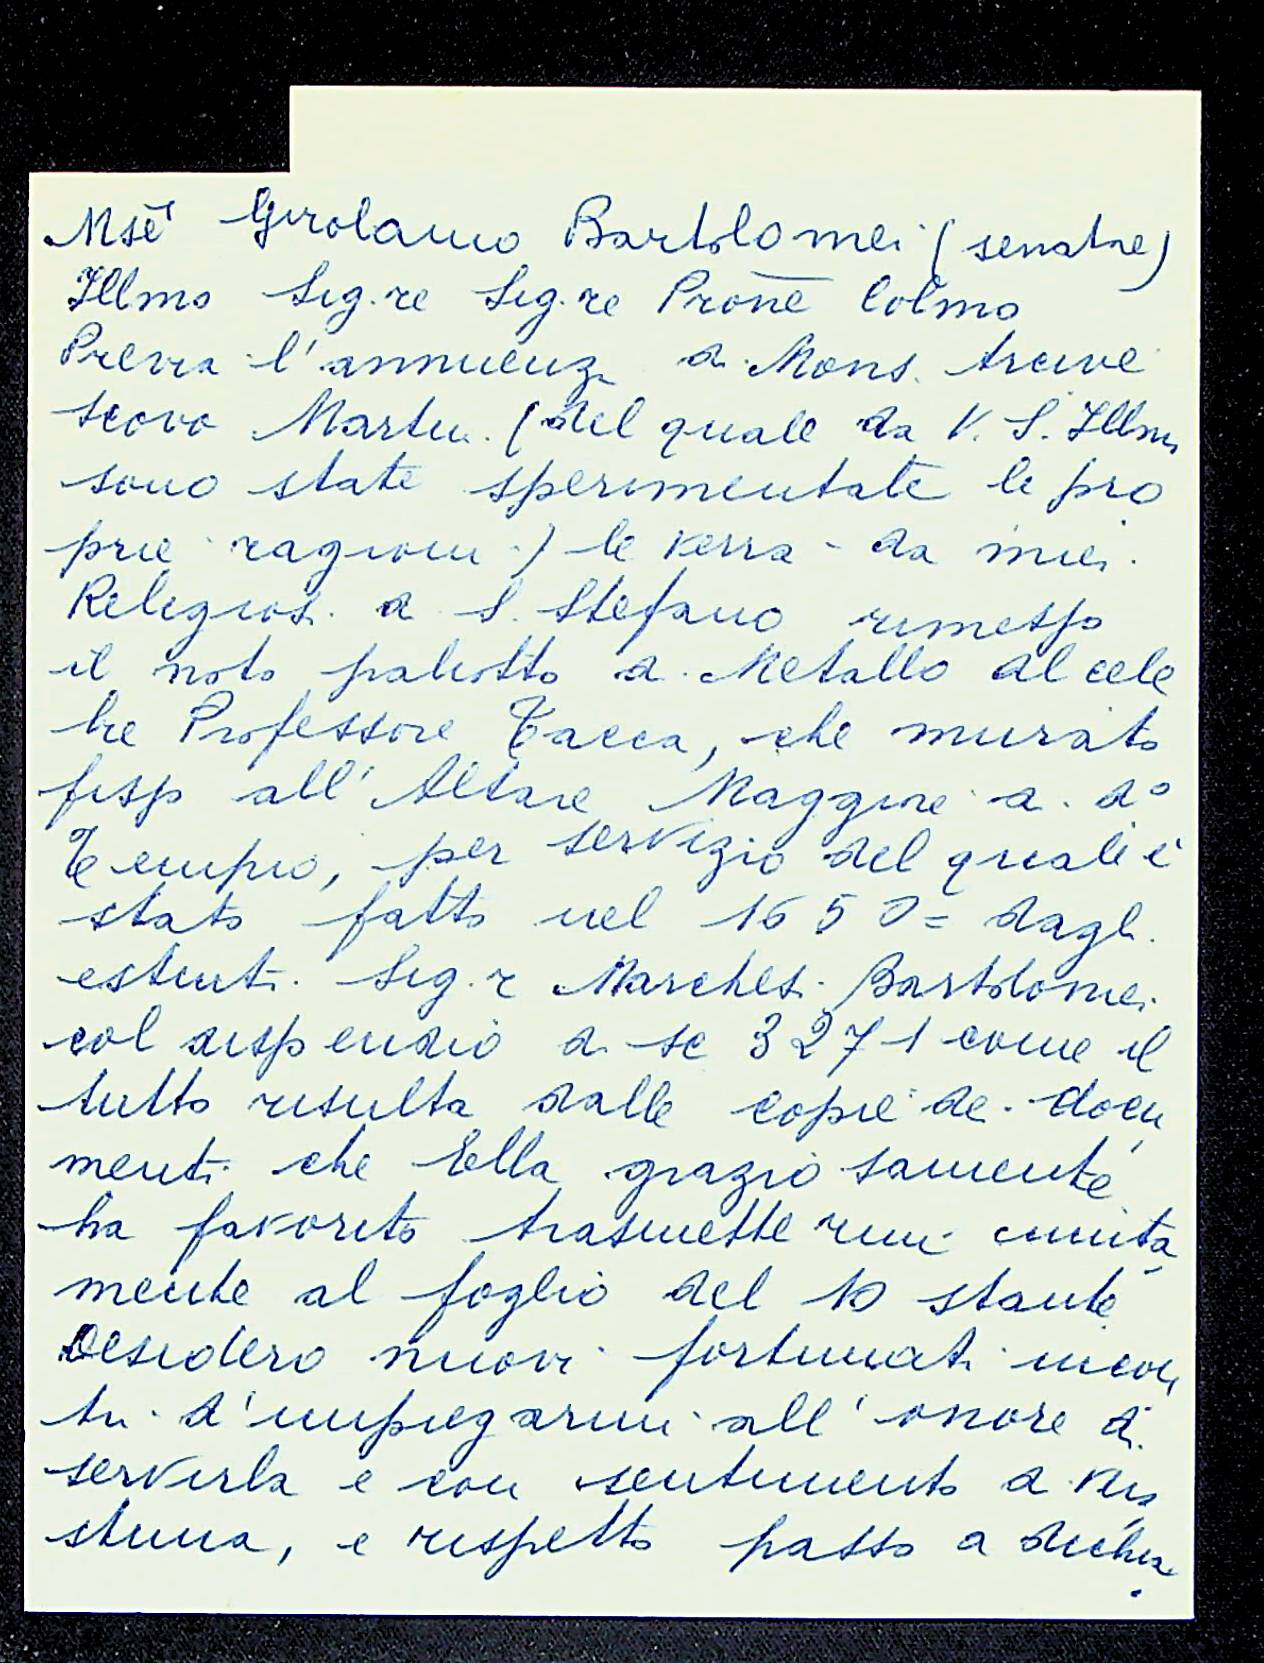 Msē Girolamo Bartolomei (senatore)
Illmo Sig.re Sig.re Prone Colmo
Previa l'annuenza di Mons. Arcive
scovo Martini (del quale da V. S. Illma
sono state sperimentate le pro
prie ragioni) le verrà da miei
Religiosi di S. Stefano rimesso
il noto paliotto di Metallo del cele
bre Professore Tacca, che murato
fisso all'Altare Maggiore di do
Tempio, per servizio del quale è
stato fatto nel 1650= dagli
estinti Sig.r Marchesi Bartolomei
col dispendio di sc 3271 come il
tutto resulta dalle copie de docu
menti che Ella graziosamente
ha favorito trasmettermi unita
mente al foglio del 10 stante
Desidero nuovi fortunati incon
tri d'impiegarmi all'onore di
servirla e con sentimento di vera
stima, e rispetto passo a dichia